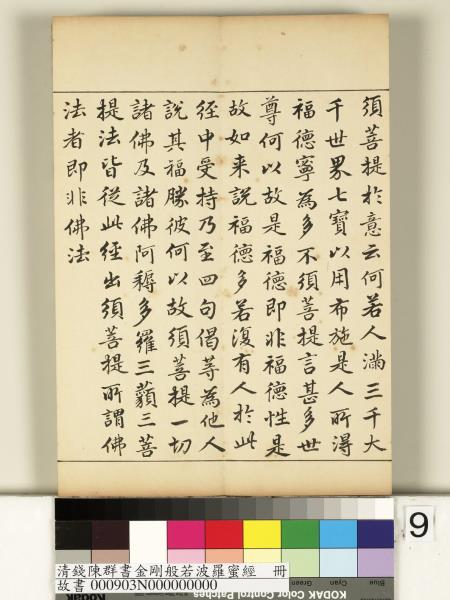 須菩提於意云何若人滿三千大
千世界七寶以用布施是人所得
福德寧為多不須菩提言甚多世
尊何以故是福德即非福德性是
故如来說福德多若復有人於此
經中受持乃至四句偈等為他人
說其福勝彼何以故須菩提一切
諸佛及諸佛阿耨多羅三藐三菩
提法皆從此經出須菩提所謂佛
法者即非佛法
9
清錢陳群書金剛般若波羅蜜經 冊
故書 000903N000000000
Blue Cyan Green
Kodak
KODAK Color Control Patches